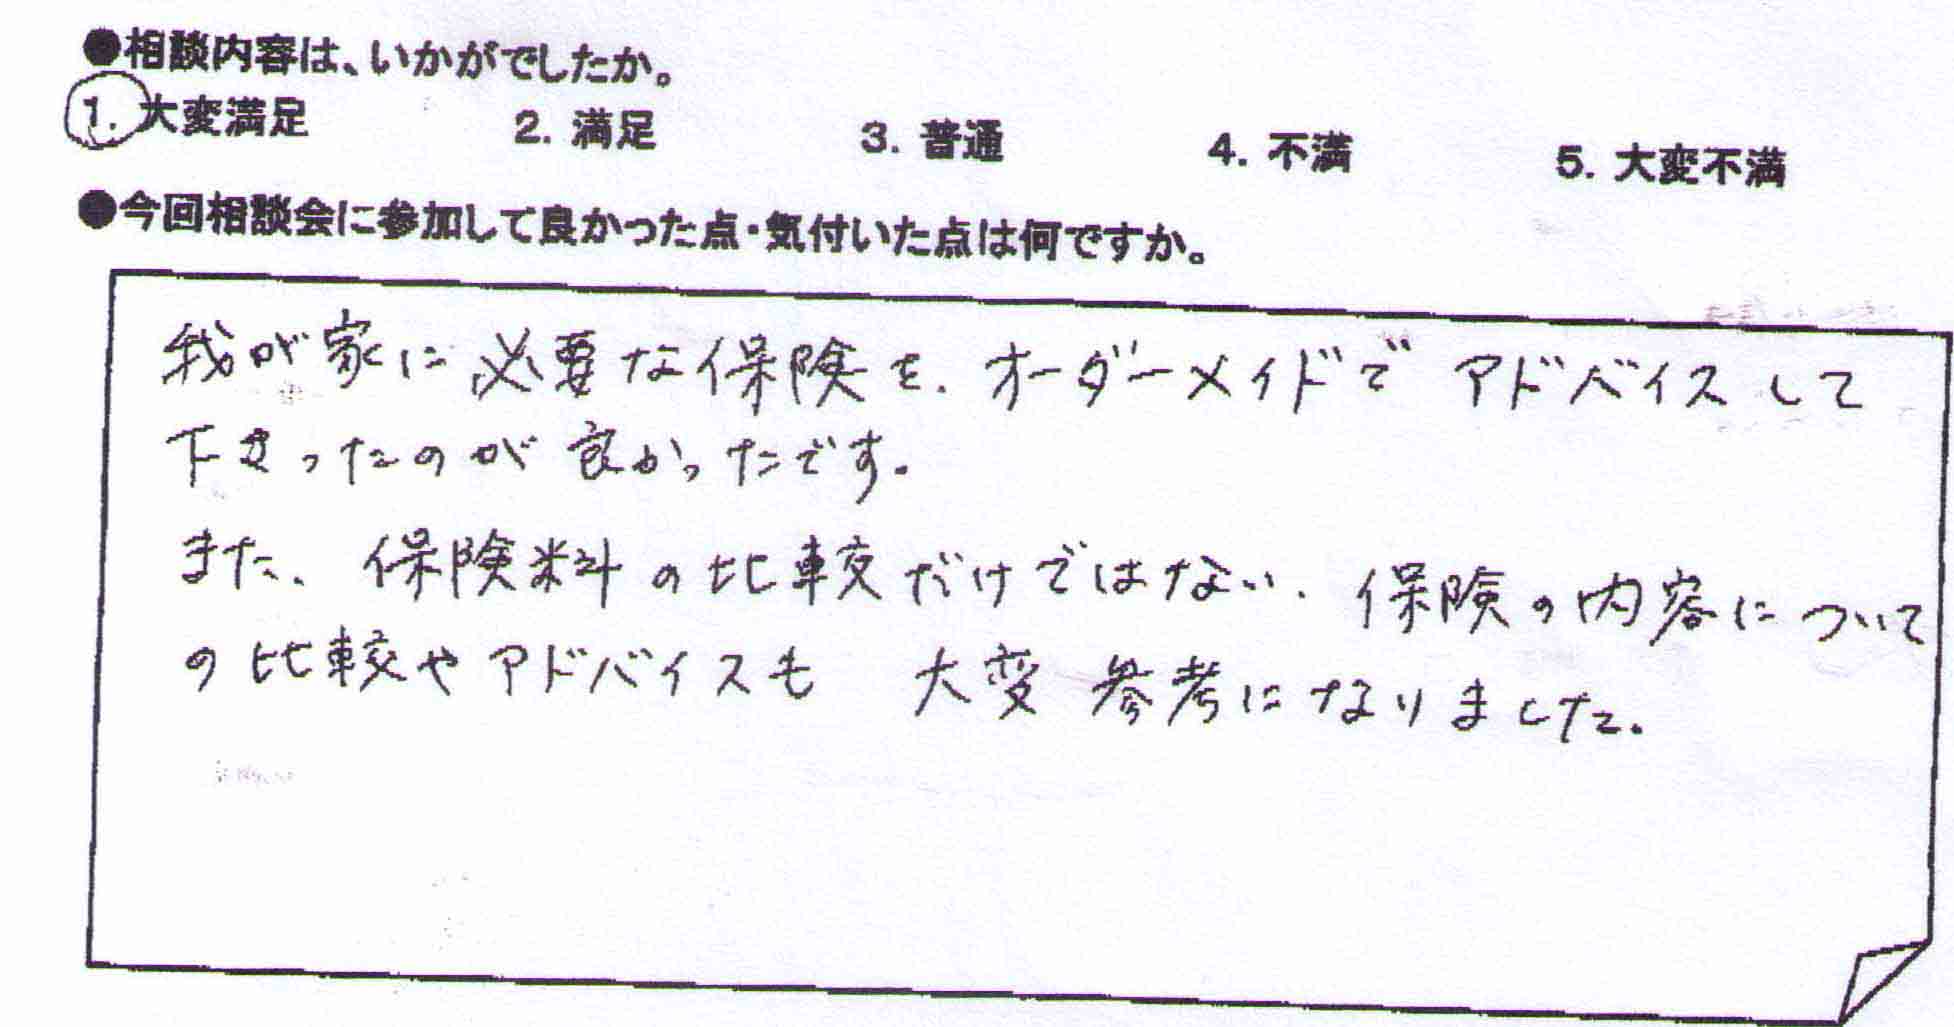 ●相談内容は、いかがでしたか。
1. 大変満足 2. 満足 3. 普通 4. 不満 5. 大変不満
●今回相談会に参加して良かった点・気付いた点は何ですか。
我が家に必要な保険を、オーダーメイドでアドバイスして
下さったのが良かったです。
また、保険料の比較だけではない、保険の内容について
の比較やアドバイスも 大変参考になりました。